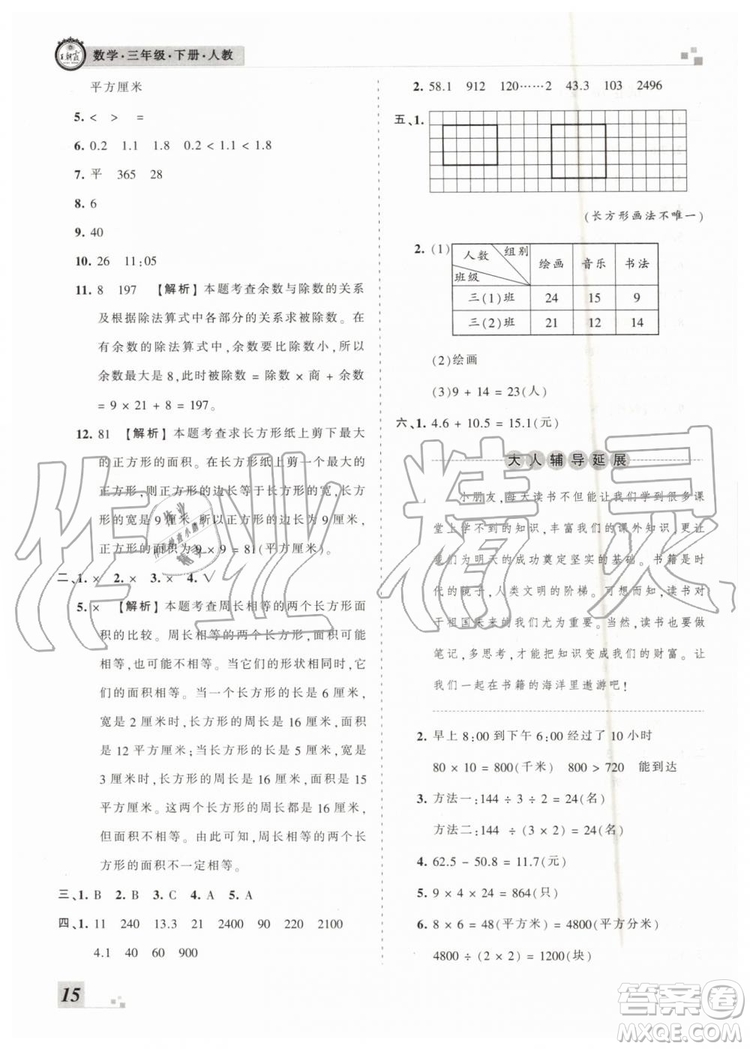 王朝霞
数学·三年级·下册·人教
平方厘米
5. < > =
6. 0.2 1.1 1.8 0.2 < 1.1 < 1.8
7. 平 365 28
8. 6
9. 40
10. 26 11:05
11. 8 197 【解析】本题考查余数与除数的关系
及根据除法算式中各部分的关系求被除数。在
有余数的除法算式中,余数要比除数小,所以
余数最大是 8,此时被除数 = 除数 × 商 + 余数
= 9 × 21 + 8 = 197。
12. 81 【解析】本题考查求长方形纸上剪下最大
的正方形的面积。在长方形纸上剪下最大的正
方形,则正方形的边长等于长方形的宽,
所以正方形的边长是 9 厘米,
正方形的面积为 9 × 9 = 81(平方厘米)。
二、1. × 2. × 3. × 4. √
5. × 【解析】本题考查周长相等的两个长方形面
积的比较。周长相等的两个长方形面积可能
相等,也可能不相等。当它们的形状相同时,
它们的面积相等。当一个长方形长是 6 厘米,
宽是 2 厘米时,长方形的周长是 16 厘米,面积
是 12 平方厘米;当另一个长方形长是 5 厘米,
宽是 3 厘米时,长方形的周长是 16 厘米,面积是 15
平方厘米,所以当两个长方形的周长相等时,长
方形的面积不一定相等。
三、1. B 2. B 3. C 4. A 5. A
四、1. 11 240 13.3 21 2400 1200
4.1 40 900
2. 58.1 912 120……2 43.2 603 2496
五、1.
(长方形画法不唯一)
2. (1)
人数 组别 班级 绘画 音乐 书法
三(1)班 24 15 9
三(2)班 21 12 14
(2)绘画
(3)9 + 14 = 23(人)
六、1. 4.6 + 10.5 = 15.1(元)
大人辅导延展
小朋友,每天读书不但能让我们学到很多课
堂上学不到的知识,丰富我们的课外知识,还会
为我们明天的成功奠定坚实的基础。书籍是时
代的镜子,人类文明的阶梯。另外,读书对
于祖国未来的
笔记,多思考,让知识变成我们的财富。让
我们一起在书籍的海洋里遨游吧!
2. 早上 8:00 到下午 6:00 经过了 10 小时
80 × 10 = 800(千米) 800 > 780 能到达
3. 方法一:144 ÷ 3 ÷ 2 = 24(名)
方法二:144 ÷ (3 × 2) = 24(名)
4. 62.5 - 50.8 = 11.7(元)
5. 9 × 4 × 24 = 864(只)
6. 8 × 6 = 48(平方米) = 4800(平方分米)
4800 ÷ (2 × 2) = 1200(块)
15
作业精灵
答案圈
MXQE.COM